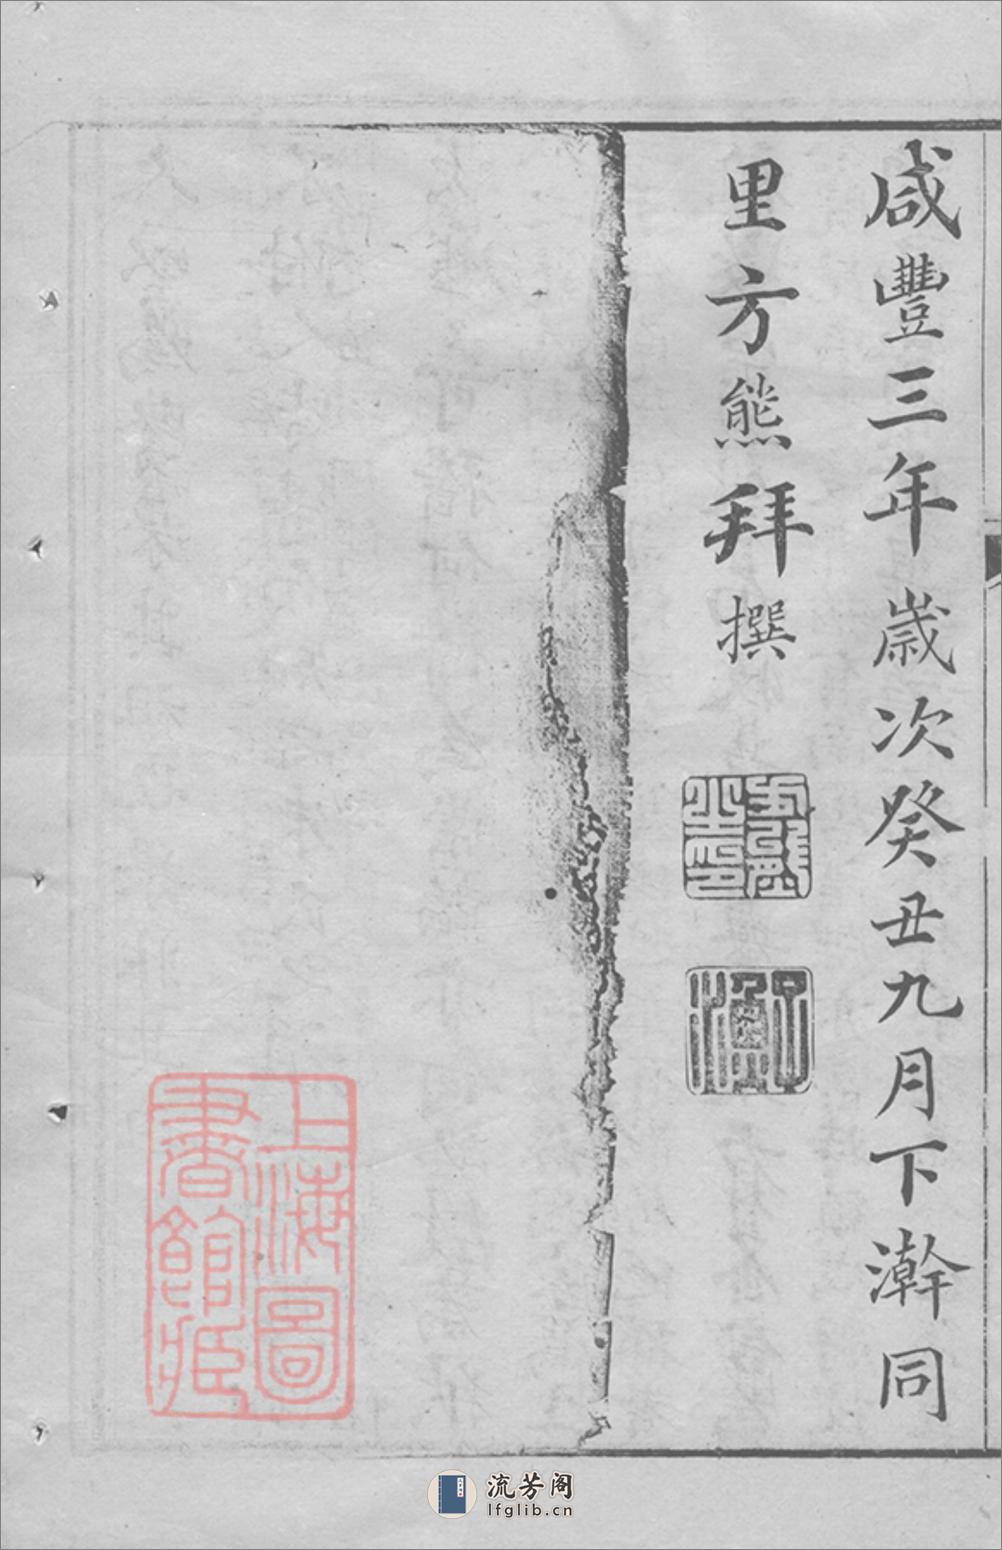 咸豐三年歲次癸丑九月下澣同
里方熊拜撰
方熊之印
子漁
上海圖書館藏
流芳阁
lfglib.cn